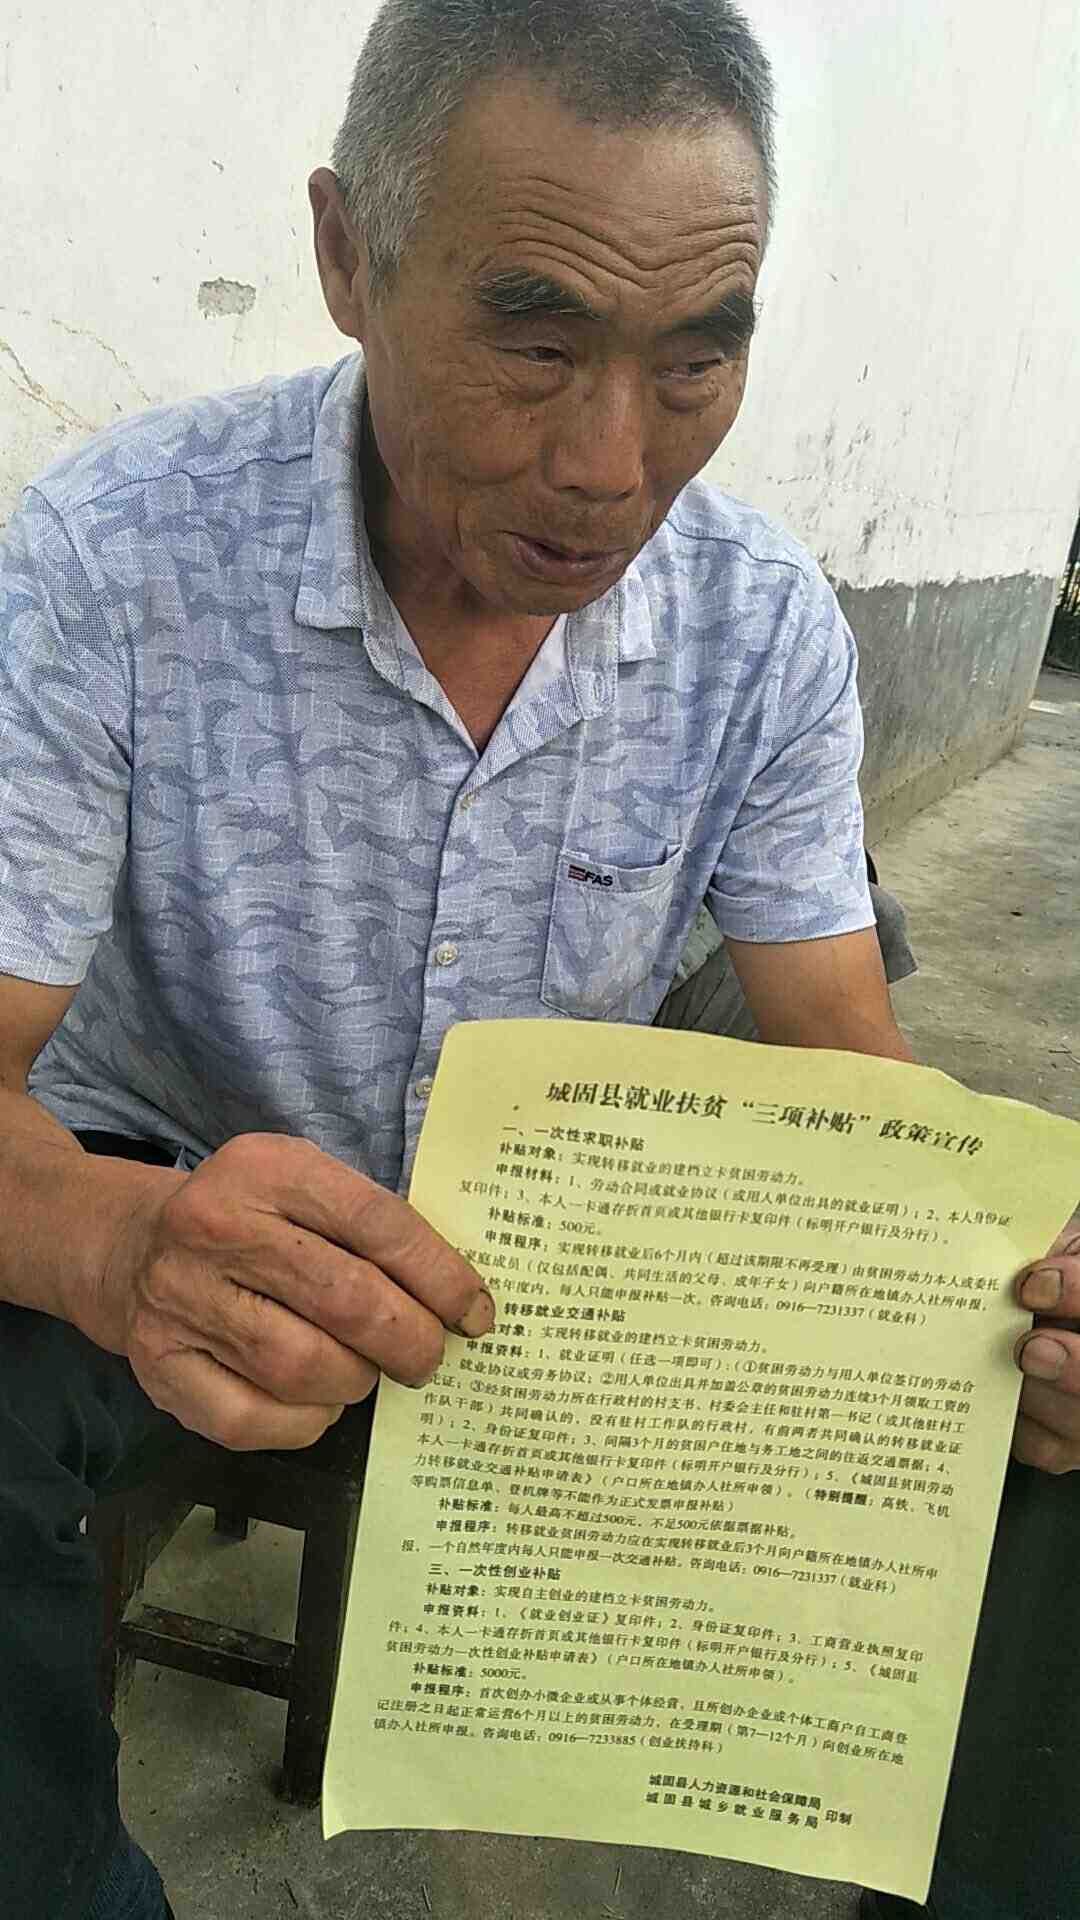 FAS
城固县就业扶贫“三项补贴”政策宣传
一、一次性求职补贴
补贴对象：实现转移就业的建档立卡贫困劳动力。
申报材料：1、劳动合同或就业协议（或用人单位出具的就业证明）；2、本人身份证
复印件；3、本人一卡通存折首页或其他银行卡复印件（标明开户银行及分行）。
补贴标准：500元。
申报程序：实现转移就业后6个月内（超过该期限不再受理）由贫困劳动力本人或委托
家庭成员（仅包括配偶、共同生活的父母、成年子女）向户籍所在地镇办人社所申报，
然年度内，每人只能申报补贴一次。咨询电话：0916—7231337（就业科）
转移就业交通补贴
贴对象：实现转移就业的建档立卡贫困劳动力。
申报资料：1、就业证明（任选一项即可）：（①贫困劳动力与用人单位签订的劳动合
、就业协议或劳务协议；②用人单位出具并加盖公章的贫困劳动力连续3个月领取工资的
凭证；③经贫困劳动力所在行政村的村支书、村委会主任和驻村第一书记（或其他驻村工
作队干部）共同确认的，没有驻村工作队的行政村，有前两者共同确认的转移就业证
明）；2、身份证复印件；3、间隔3个月的贫困户住地与务工地之间的往返交通票据；4、
本人一卡通存折首页或其他银行卡复印件（标明开户银行及分行）；5、《城固县贫困劳动
力转移就业交通补贴申请表》（户口所在地镇办人社所申领）。（特别提醒：高铁、飞机
等购票信息单、登机牌等不能作为正式发票申报补贴）
补贴标准：每人最高不超过500元，不足500元依据票据补贴。
申报程序：转移就业贫困劳动力应在实现转移就业后3个月向户籍所在地镇办人社所申
报，一个自然年度内每人只能申报一次交通补贴。咨询电话：0916—7231337（就业科）
三、一次性创业补贴
补贴对象：实现自主创业的建档立卡贫困劳动力。
申报资料：1、《就业创业证》复印件；2、身份证复印件；3、工商营业执照复印
件；4、本人一卡通存折首页或其他银行卡复印件（标明开户银行及分行）；5、《城固县
贫困劳动力一次性创业补贴申请表》（户口所在地镇办人社所申领）。
补贴标准：5000元。
申报程序：首次创办小微企业或从事个体经营，且所创办企业或个体工商户自工商登
记注册之日起正常运营6个月以上的贫困劳动力，在受理期（第7—12个月）向创业所在地
镇办人社所申报。咨询电话：0916—7233885（创业扶持科）
城固县人力资源和社会保障局
城固县城乡就业服务局 印制